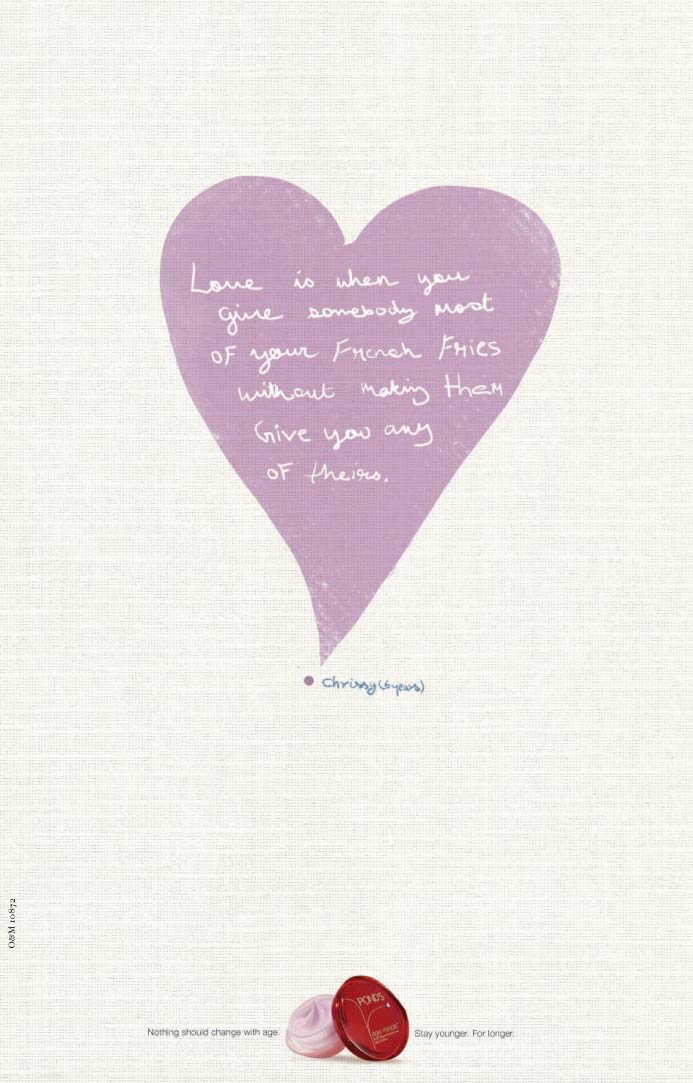 Love is when you
give somebody most
of your French Fries
without making them
Give you any
of theirs.
Chrissy (6 years)
O&M 10872
Nothing should change with age.
POND'S
age miracle
Stay younger. For longer.